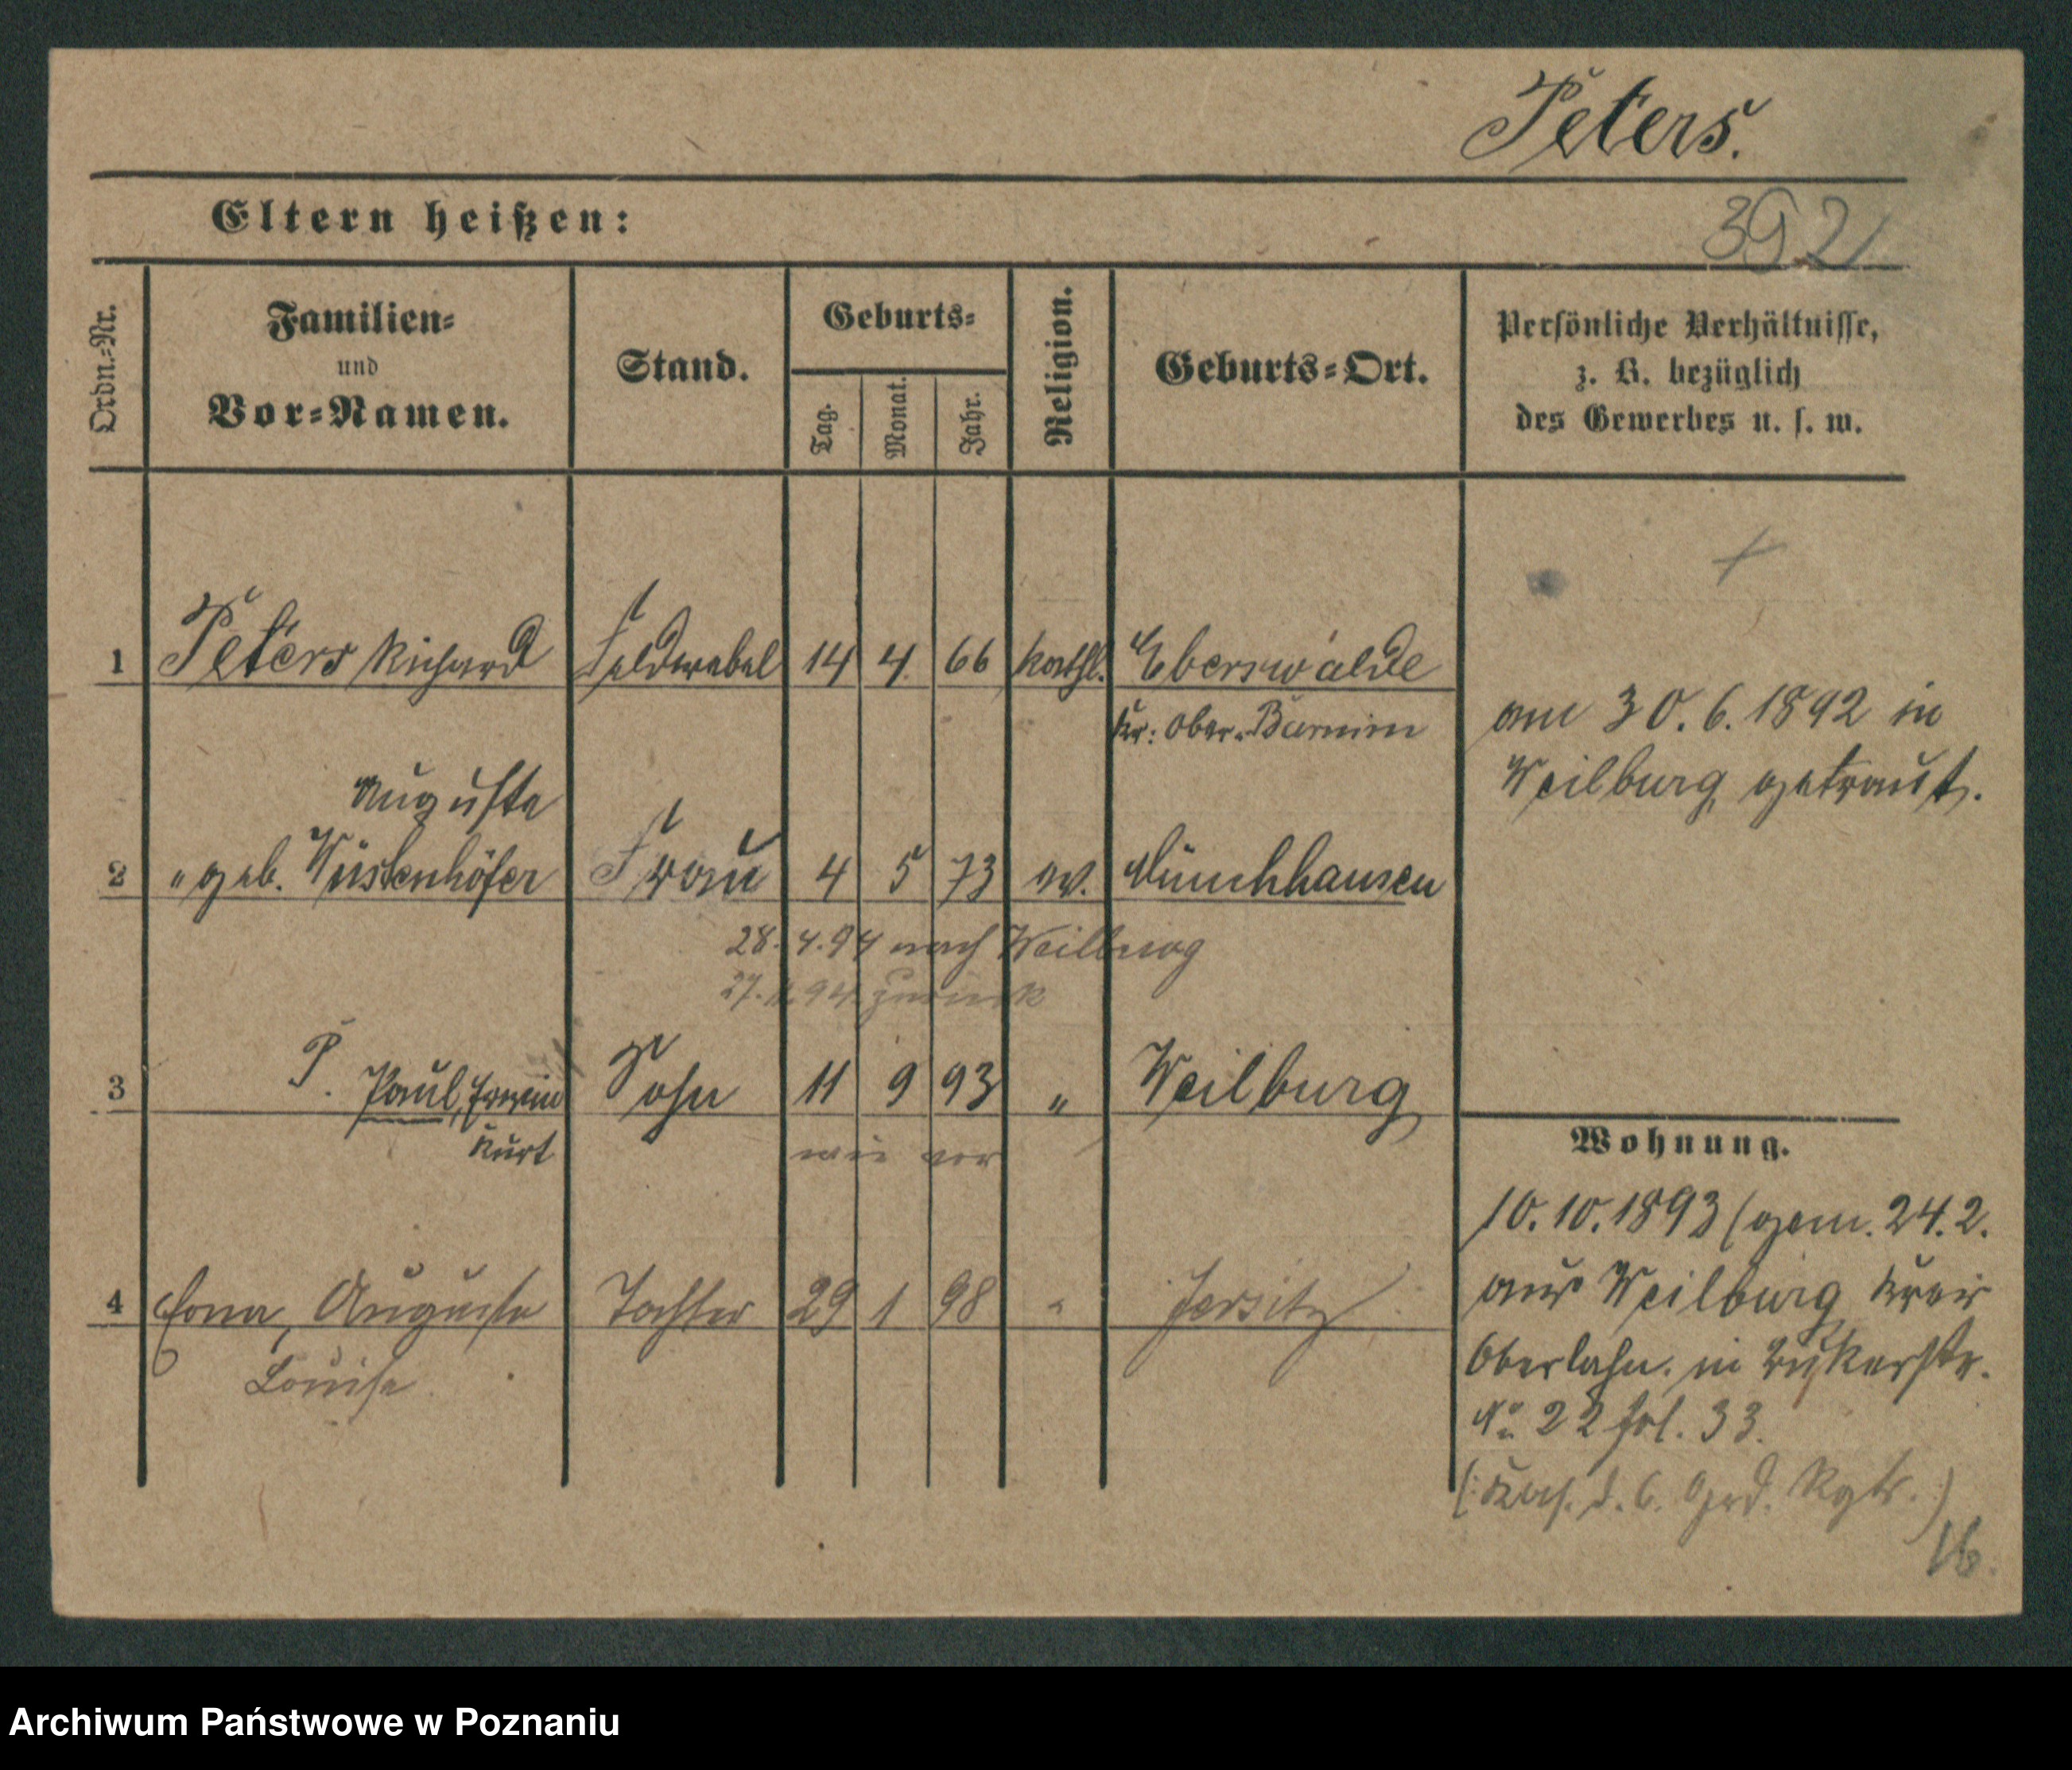 Peters.
Eltern heißen:
392
Ordn.-Nr.
Familien-
und
Vor-Namen.
Stand.
Geburts-
Tag.
Monat.
Jahr.
Religion.
Geburts-Ort.
Persönliche Verhältnisse,
z. B. bezüglich
des Gewerbes u. s. w.
1 Peters Richard Feldwebel 14 4 66 kathl. Eberswalde
Kr: Ober-Barnim
am 30. 6. 1892 in
Weilburg getraut.
Auguste
2 " geb. Wüstenhöfer Frau 4 5 73 ev. Münchhausen
28. 4. 94 nach Weilburg
27. 94 zurück
3 P. Paul, Erwin Sohn 11 9 93 " Weilburg
Kurt
wie vor
4 Erna, Auguste Tochter 29 1 98 " Jersitz
Louise
Wohnung.
10. 10. 1893 (gem. 24. 2.
aus Weilburg Kreis
Oberlahn. in
No 22 fol. 33.
(: Kas. d. 6. Grd. Rgts. :)
16.
Archiwum Państwowe w Poznaniu